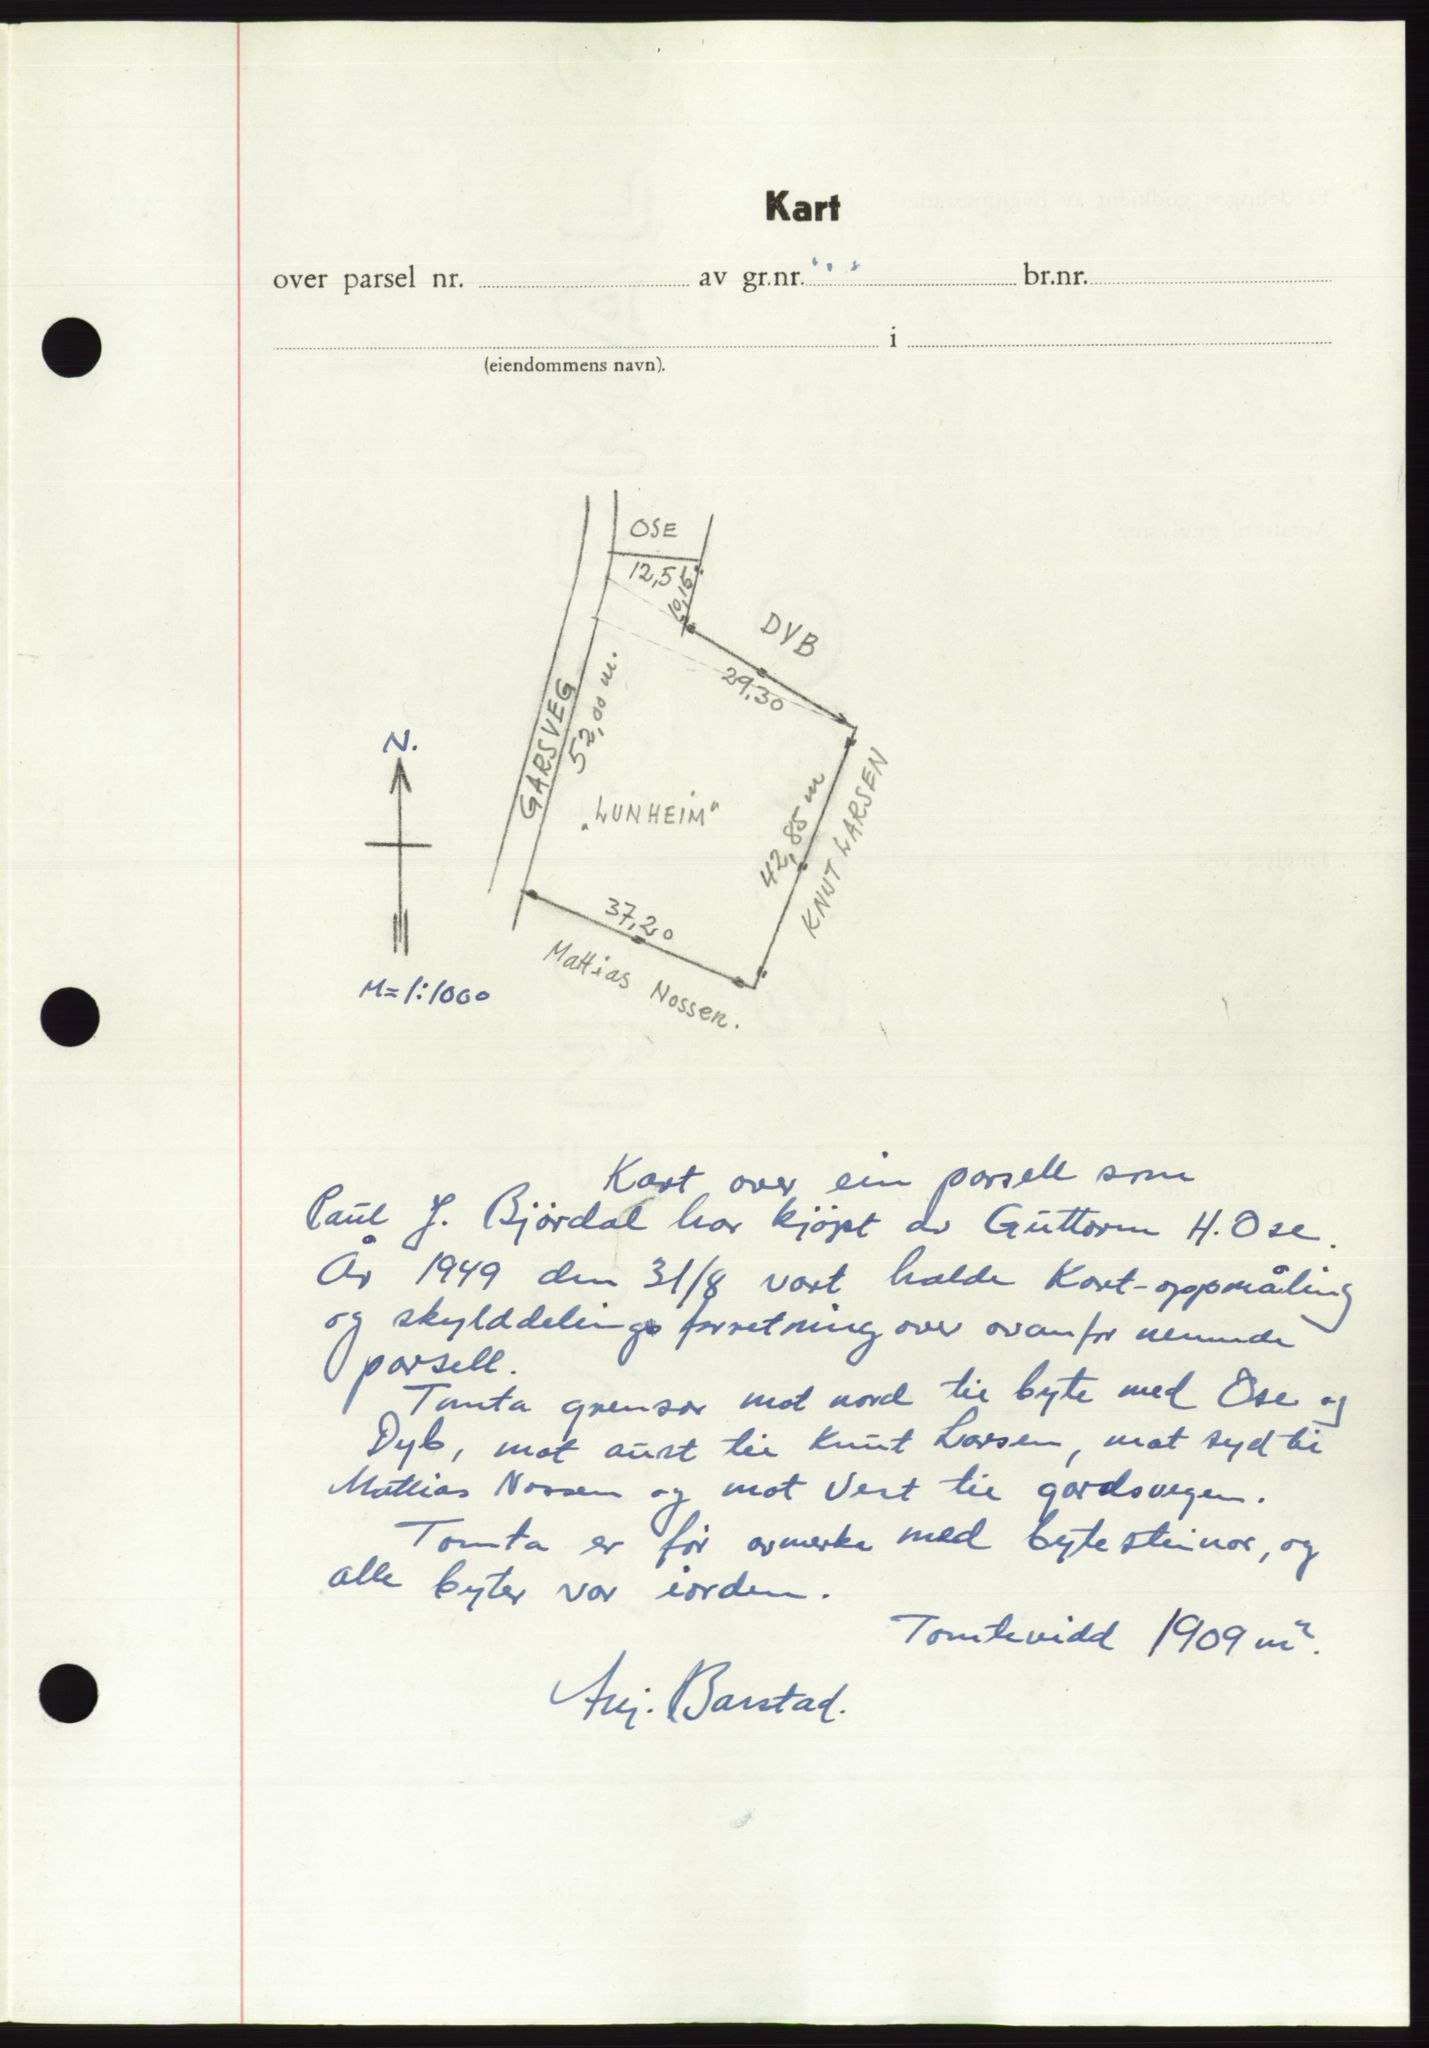 Kart
over parsel nr. av gr.nr. br.nr.
i
(eiendommens navn).
OSE
12,5
10,15
DYB
29,30
GARSVEG
52,00 m.
N.
"LUNHEIM"
42,85 m
KNUT LARSEN
37,20
Mattias Nossen.
M=1:1000
Kart over ein parsell som
Paul J. Bjørdal har kjøpt av Guttorm H. Ose.
År 1949 den 31/8 vart halde Kart-oppmåling
og skylddelings forretning over ovanfor nemnde
parsell.
Tomta grensar mot nord til byte med Ose og
Dyb, mot aust til Knut Larsen, mot syd til
Mattias Nossen og mot Vest til gardsvegen.
Tomta er før avmerka med bytesteinar, og
alle byter var iorden.
Tomtevidd 1909 m².
Barstad.